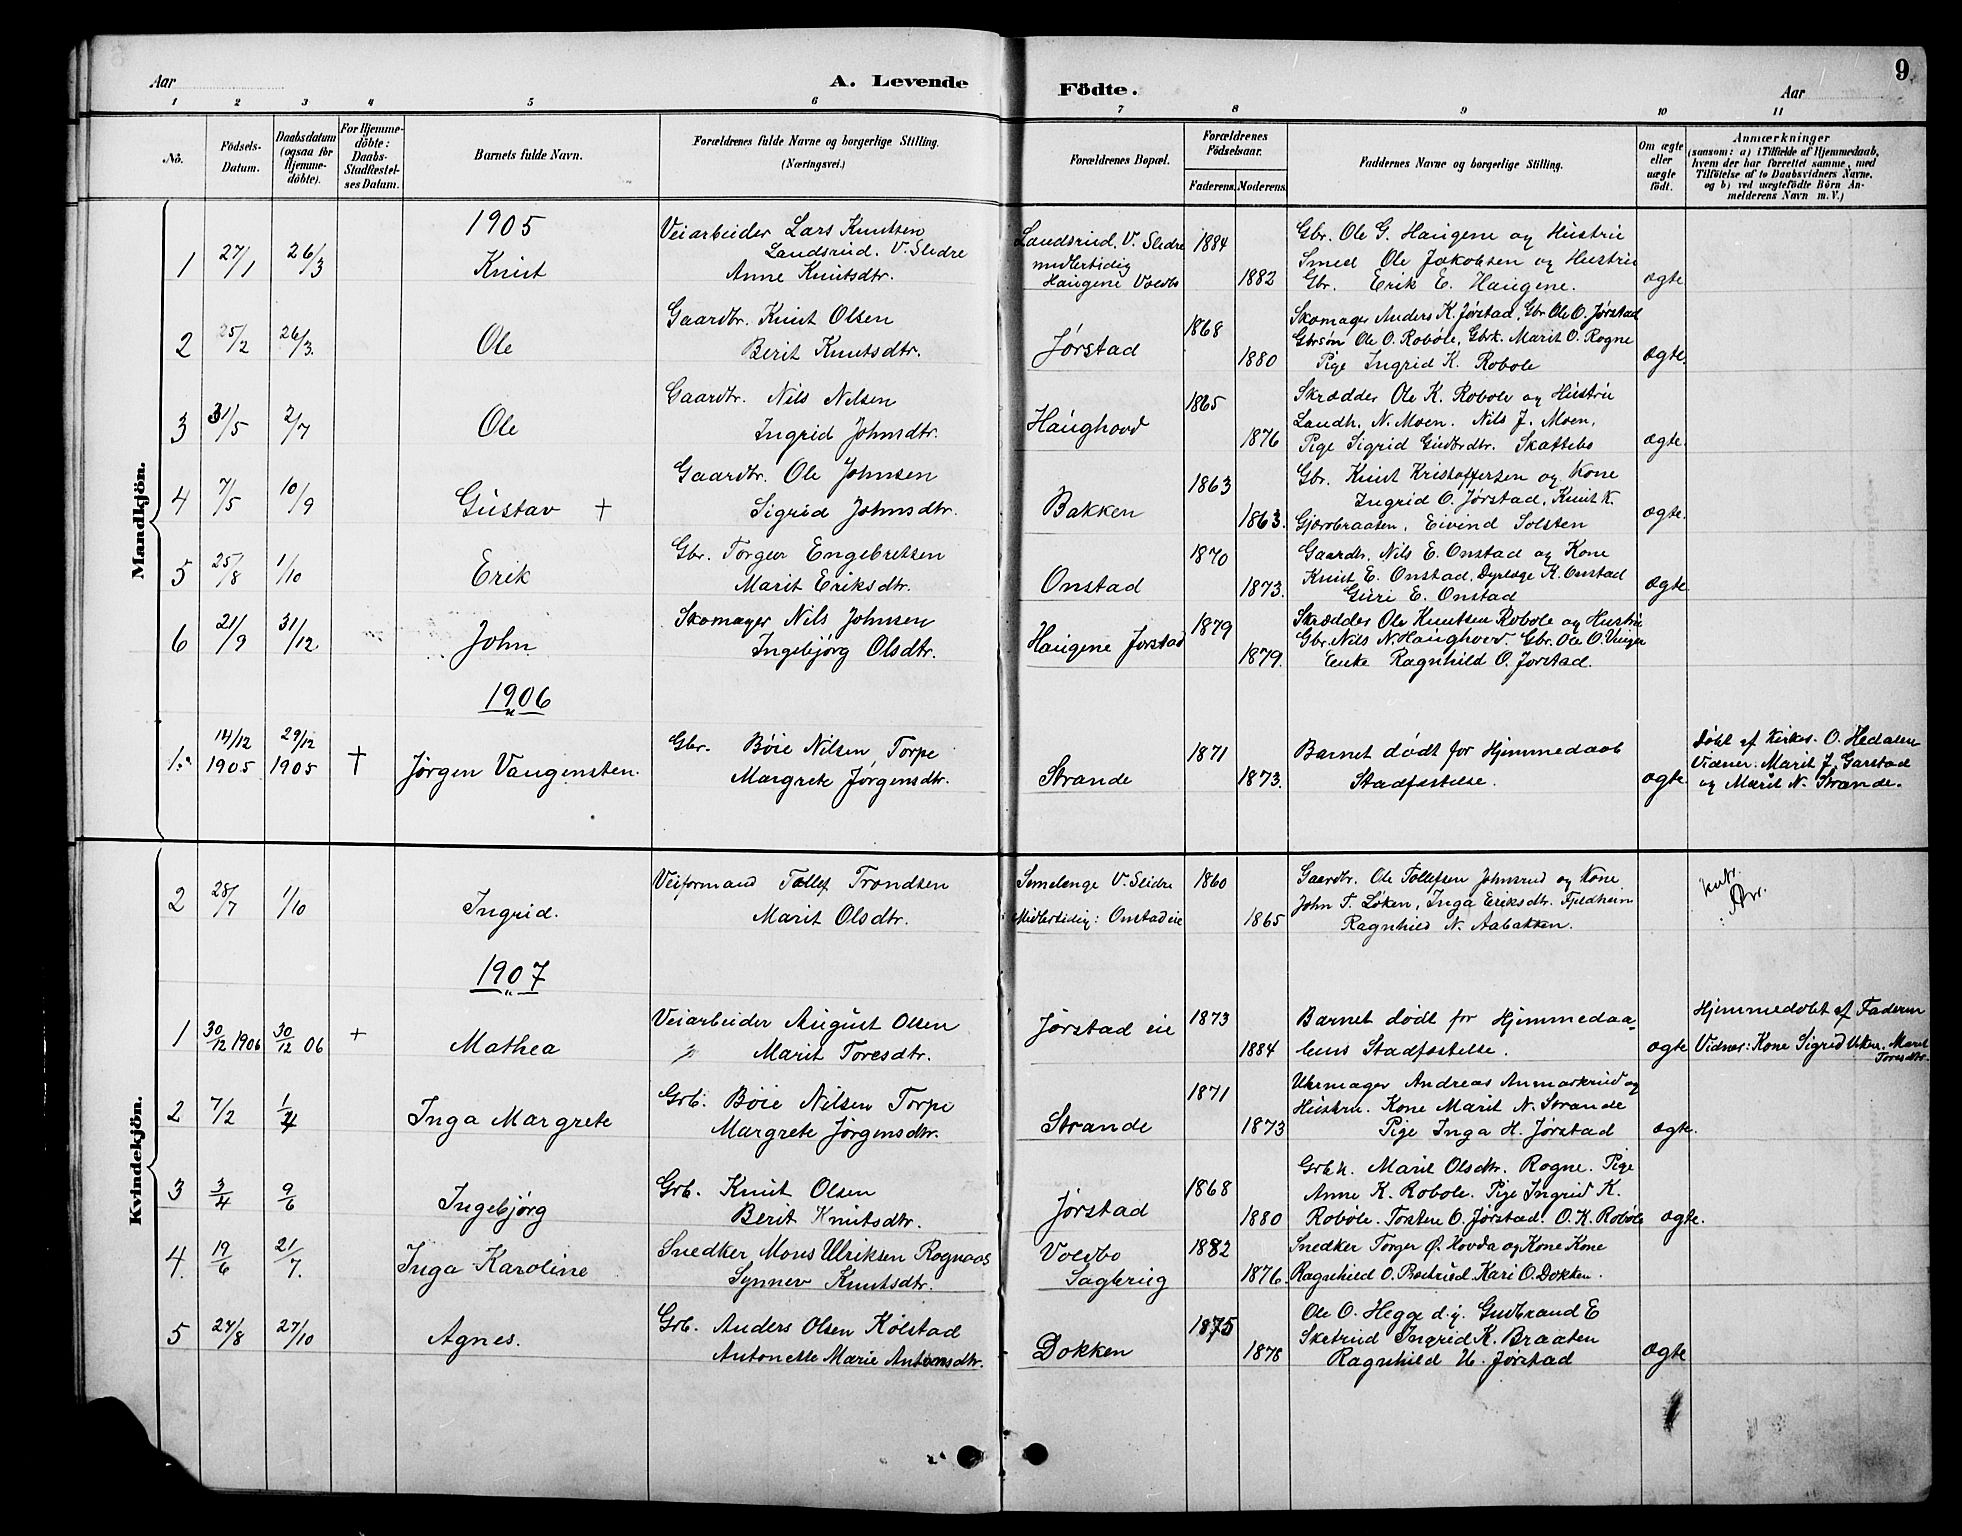 Aar
A. Levende
Födte.
Aar
9
1 2 3 4 5 6 7 8 9 10 11
No.
Födsels-Datum.
Daabsdatum (ogsaa for Hjemme-döbte).
For Hjemme-döbte: Daabs-Stadfæstel-ses Datum.
Barnets fulde Navn.
Forældrenes fulde Navne og borgerlige Stilling.
(Næringsvei.)
Forældrenes Bopæl.
Forældrenes Födselsaar.
Faderens. Moderens.
Faddernes Navne og borgerlige Stilling.
Om ægte eller uægte födt.
Anmærkninger
(saasom: a) i Tilfælde af Hjemmedaab,
hvem der har forrettet samme, med
Tilföielse af to Daabsvidners Navne,
og b) ved uægtefödte Börn An-
melderens Navn m. V.)
Mandkjön.
1905
1 27/1 26/3 Knut
Veiarbeider Lars Knutsen
Landsrud. V. Slidre
Anne Knutsdtr.
Landsrud, V. Slidre
midlertidig
Haugene Voldbo
1884
1882
Gbr. Ole G. Haugene og Hustru
Smed Ole Jakobsen og Hustru
Gbr. Erik E. Haugene.
ægte
2 25/2 26/3. Ole
Gaardbr. Knut Olsen
Berit Knutsdtr.
Jørstad
1868
1880
Skomager Anders K. Jørstad, Gbr Ole O. Jørstad
Gbrsøn Ole O. Robøle, Gbrk. Marit O. Rogne
Pige Ingrid K. Robole
ægte.
3 31/5 2/7 Ole
Gaardbr. Nils Nilsen
Ingrid Johnsdtr.
Haughovd
1865
1876
Skrædder Ole K. Robole og Hustru
Landh. N. Moen. Nils J. Moen,
Pige Sigrid Gudbrdtr. Skattebo
ægte.
4 7/5 10/9 Gustav +
Gaardbr. Ole Johnsen
Sigrid Johnsdtr.
Bakken
1863
1863.
Gbr. Knut Kristoffersen og Kone
Ingrid O. Jørstad, Knut K.
Gjærbraaten, Eivind Solsten
ægte.
5 25/8 1/10 Erik
Gbr. Torger Engebretsen
Marit Eriksdtr.
Onstad
1870
1873.
Gaardbr. Nils E. Onstad og Kone
Knut E. Onstad, Dyrlæge K. Onstad
Guri E. Onstad
ægte
6 21/9 31/12. John
Skomager Nils Johnsen
Ingebjörg Olsdtr.
Haugene Jørstad
1879
1879.
Skrædder Ole Knutsen Robole og Hustru
Gbr. Nils N Haughovd Gbr. Ole O.
Enke Ragnhild O. Jørstad.
1906
1. 14/12 1905 29/12 1905 + Jörgen Vangensten.
Gbr. Böie Nilsen Torpe
Margrete Jörgensdtr.
Strande
1871
1873.
Barnet dødt før Hjemmedaab
Stadfæstelse.
ægte
Døbt af Kirkes. O. Hedalen
Vidner. Marit J. Garstad
og Marit N. Strande.
Kvindekjön.
2 28/7 1/10 Ingrid.
Veiformand Tollef Trondsen
Marit Olsdtr.
Semelenge V. Slidre
Midlertidig: Onstadeie
1860
1865
Gaardbr. Ole Tollefsen Johnsrud og Kone
John T. Løken, Inga Eriksdtr. Fjeldheim
Ragnhild N. Aabakken.
1907
1 30/12 1906 30/12 06 + Mathea
Veiarbeider August Olsen
Marit Toresdtr.
Jørstad eie
1873
1884
Barnet dødt før Hjemmedaa-
bens Stadfæstelse.
ægte
Hjemmedøbt af Faderen
Vidner: Kone Sigrid Uken, Marit
Toresdtr.
2 7/2 1/4 Inga Margrete
Grb. Böie Nilsen Torpe
Margrete Jörgensdtr.
Strande
1871
1873
Uhrmager Andreas Anmarkrud og
Hustru. Kone Marit N. Strande
Pige Inga H. Jørstad
ægte.
3 3/4 9/6 Ingebjørg
Grb. Knut Olsen
Berit Knutsdtr.
Jørstad
1868
1880
Grbk. Marit Olsdtr. Rogne. Pige
Anne K. Robole. Pige Ingrid K.
Robøle. Torsten O. Jørstad. O. K. Robøle
ægte.
4. 19/6 21/7. Inga Karoline
Snedker Mons Ulriksen Rognaas
Synnev Knutsdtr.
Voldbo
Sagbrug
1882
1876.
Snedker Torger Ø. Hovda og Kone Kone
Ragnhild O. Berud. Kari O. Dokken.
5 24/8 27/10 Agnes.
Grb. Anders Olsen Kolstad
Antonette Marie Antonsdtr.
Dokken
1875
1878
Ole O. Hegge d.y. Gudbrand E
Sketrud Ingrid K. Braaten
Ragnhild H. Jørstad
ægte